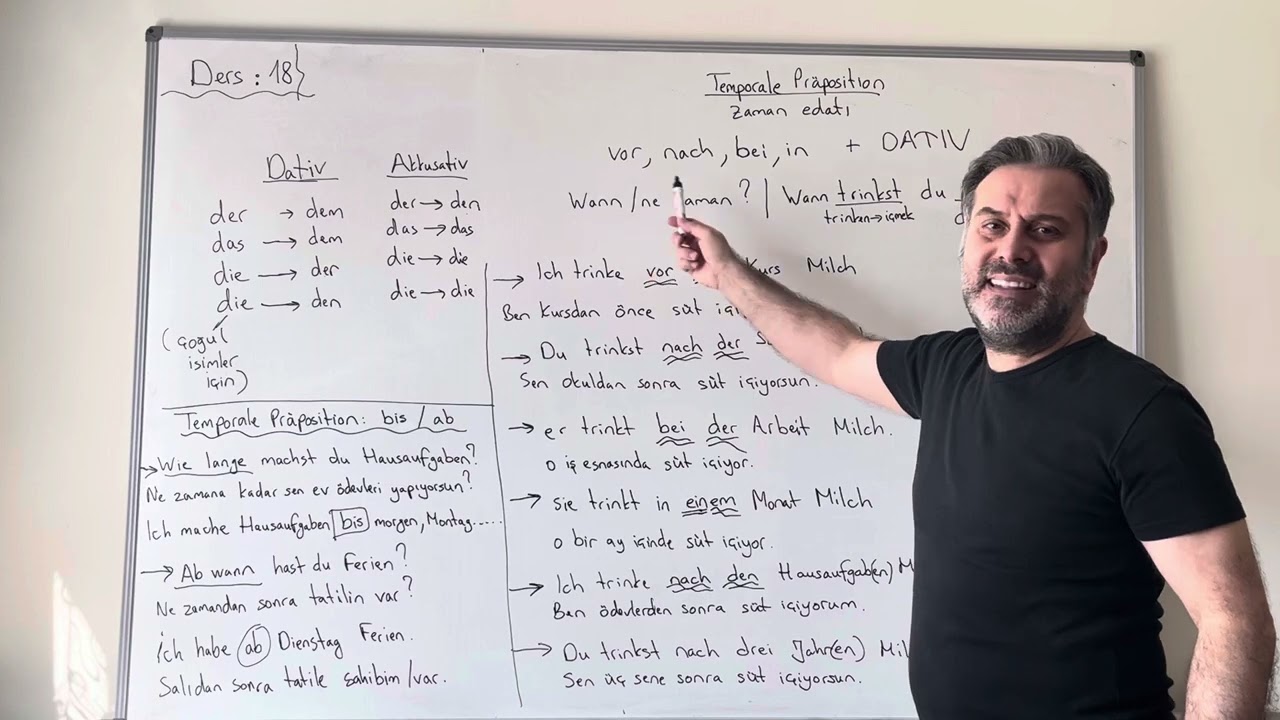 Ders : 18
Dativ
der → dem
das → dem
die → der
die → den
(çoğul
isimler
için)
Akkusativ
der → den
das → das
die → die
die → die
Temporale Präposition: bis / ab
→ Wie lange machst du Hausaufgaben?
Ne zamana kadar sen ev ödevleri yapıyorsun?
Ich mache Hausaufgaben bis morgen, Montag.....
→ Ab wann hast du Ferien?
Ne zamandan sonra tatilin var?
ich habe ab Dienstag Ferien.
Salıdan sonra tatile sahibim/var.
Temporale Präposition
zaman edatı
vor, nach, bei, in + DATIV
Wann /ne zaman? | Wann trinkst du
trinken → içmek
→ Ich trinke vor Kurs Milch
Ben kursdan önce süt
→ Du trinkst nach der
Sen okuldan sonra süt içiyorsun.
→ er trinkt bei der Arbeit Milch.
o iş esnasında süt içiyor.
→ sie trinkt in einem Monat Milch
o bir ay içinde süt içiyor.
→ Ich trinke nach den Hausaufgab(en)
Ben ödevlerden sonra süt içiyorum.
→ Du trinkst nach drei Jahr(en)
Sen üç sene sonra süt içiyorsun.